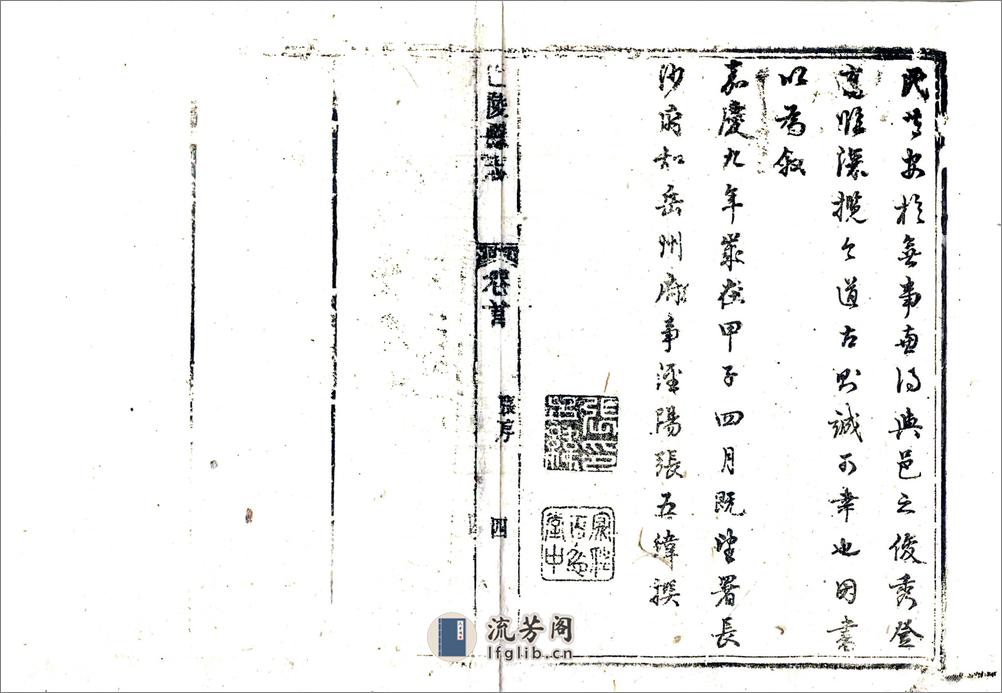 民皆安於無事更得與邑之俊秀登
高眺瀛攬今道古則誠可幸也因書
以為敘
嘉慶九年歲在甲子四月既望署長
沙府知岳州府事涇陽張五緯撰
陵縣志
卷首
張序
四
流芳阁
lfglib.cn